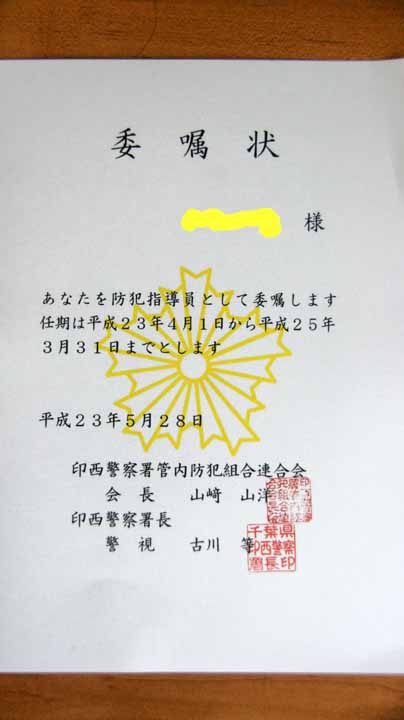 委嘱状
様
あなたを防犯指導員として委嘱します
任期は平成23年4月1日から平成25年
3月31日までとします
平成23年5月28日
印西警察署管内防犯組合連合会
会長 山﨑 山洋
印西警察署長
警視 古川 等
千葉県印西警察署長印